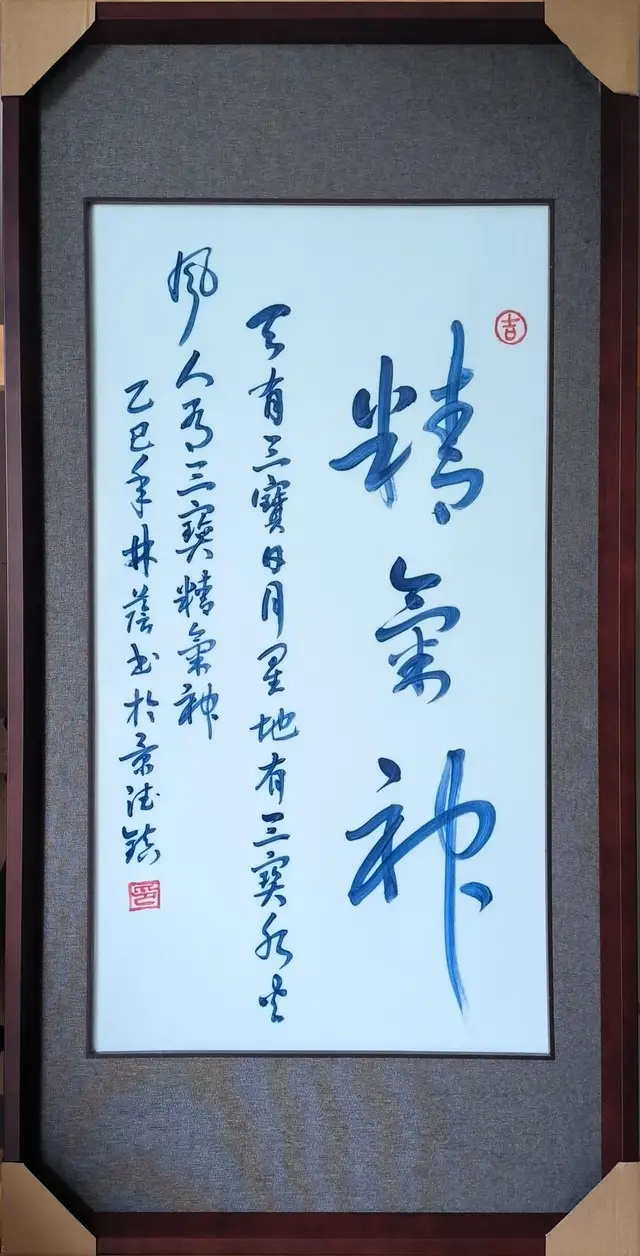 吉
精氣神
天有三寶日月星地有三寶水火
風人有三寶精氣神
乙巳年林蔭书於景德鎮